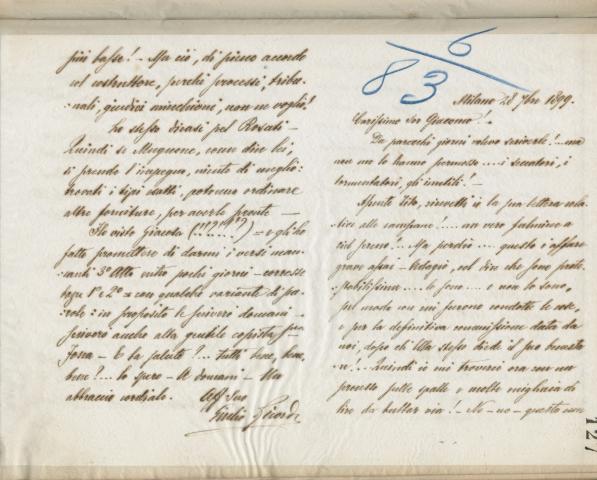 più basse! – Ma ciò, di pieno accordo
col costruttore, perchè processi, tribu=
=nali, giudici minchioni, non ne voglio!
Lo stesso dicasi pel Rosati –
Quindi se Mugnone, come dice lei,
si prende l'impegno, niente di meglio:
trovati i tipi adatti, potremo ordinare
altre forniture, per averle pronte –
Ho visto Giacosa (!!?!!?!?) = egli ha
fatto promettere di darmi i versi man=
canti 3° Atto entro pochi giorni – corresse
1° e 2° = con qualche variante di pa=
role: in proposito le scriverò domani –
scriverò anche alla gentile copista
– E la salute!... tutti bene, bene,
bene?... lo spero – A domani – Un
abbraccio cordiale. Aff Suo
Giulio Ricordi
6
8 3
Milano 28 7bre 1899.
Carissimo Sor Giacomo!
Da parecchi giorni volevo scriverle!...ma
non me lo hanno permesso.... i seccatori, i
tormentatori, gli inutili! –
Giunto Tito, ricevetti la sua lettera rela=
tiva alle campane!.... un vero fulmine a
ciel sereno!.. Ma perdio... questo è affare
grave assai – Adagio, Ella dice che sono prati=
=cabilissime.... lo sono.... e non lo sono,
pel modo con cui furono condotte le cose,
e per la definitiva commissione data da
noi, dopo che Ella stesso diede il suo benesta=
re!... Quindi io mi troverei ora con un
processo sulle spalle e molte migliaia di
lire da buttar via! – No – no – questo non
127